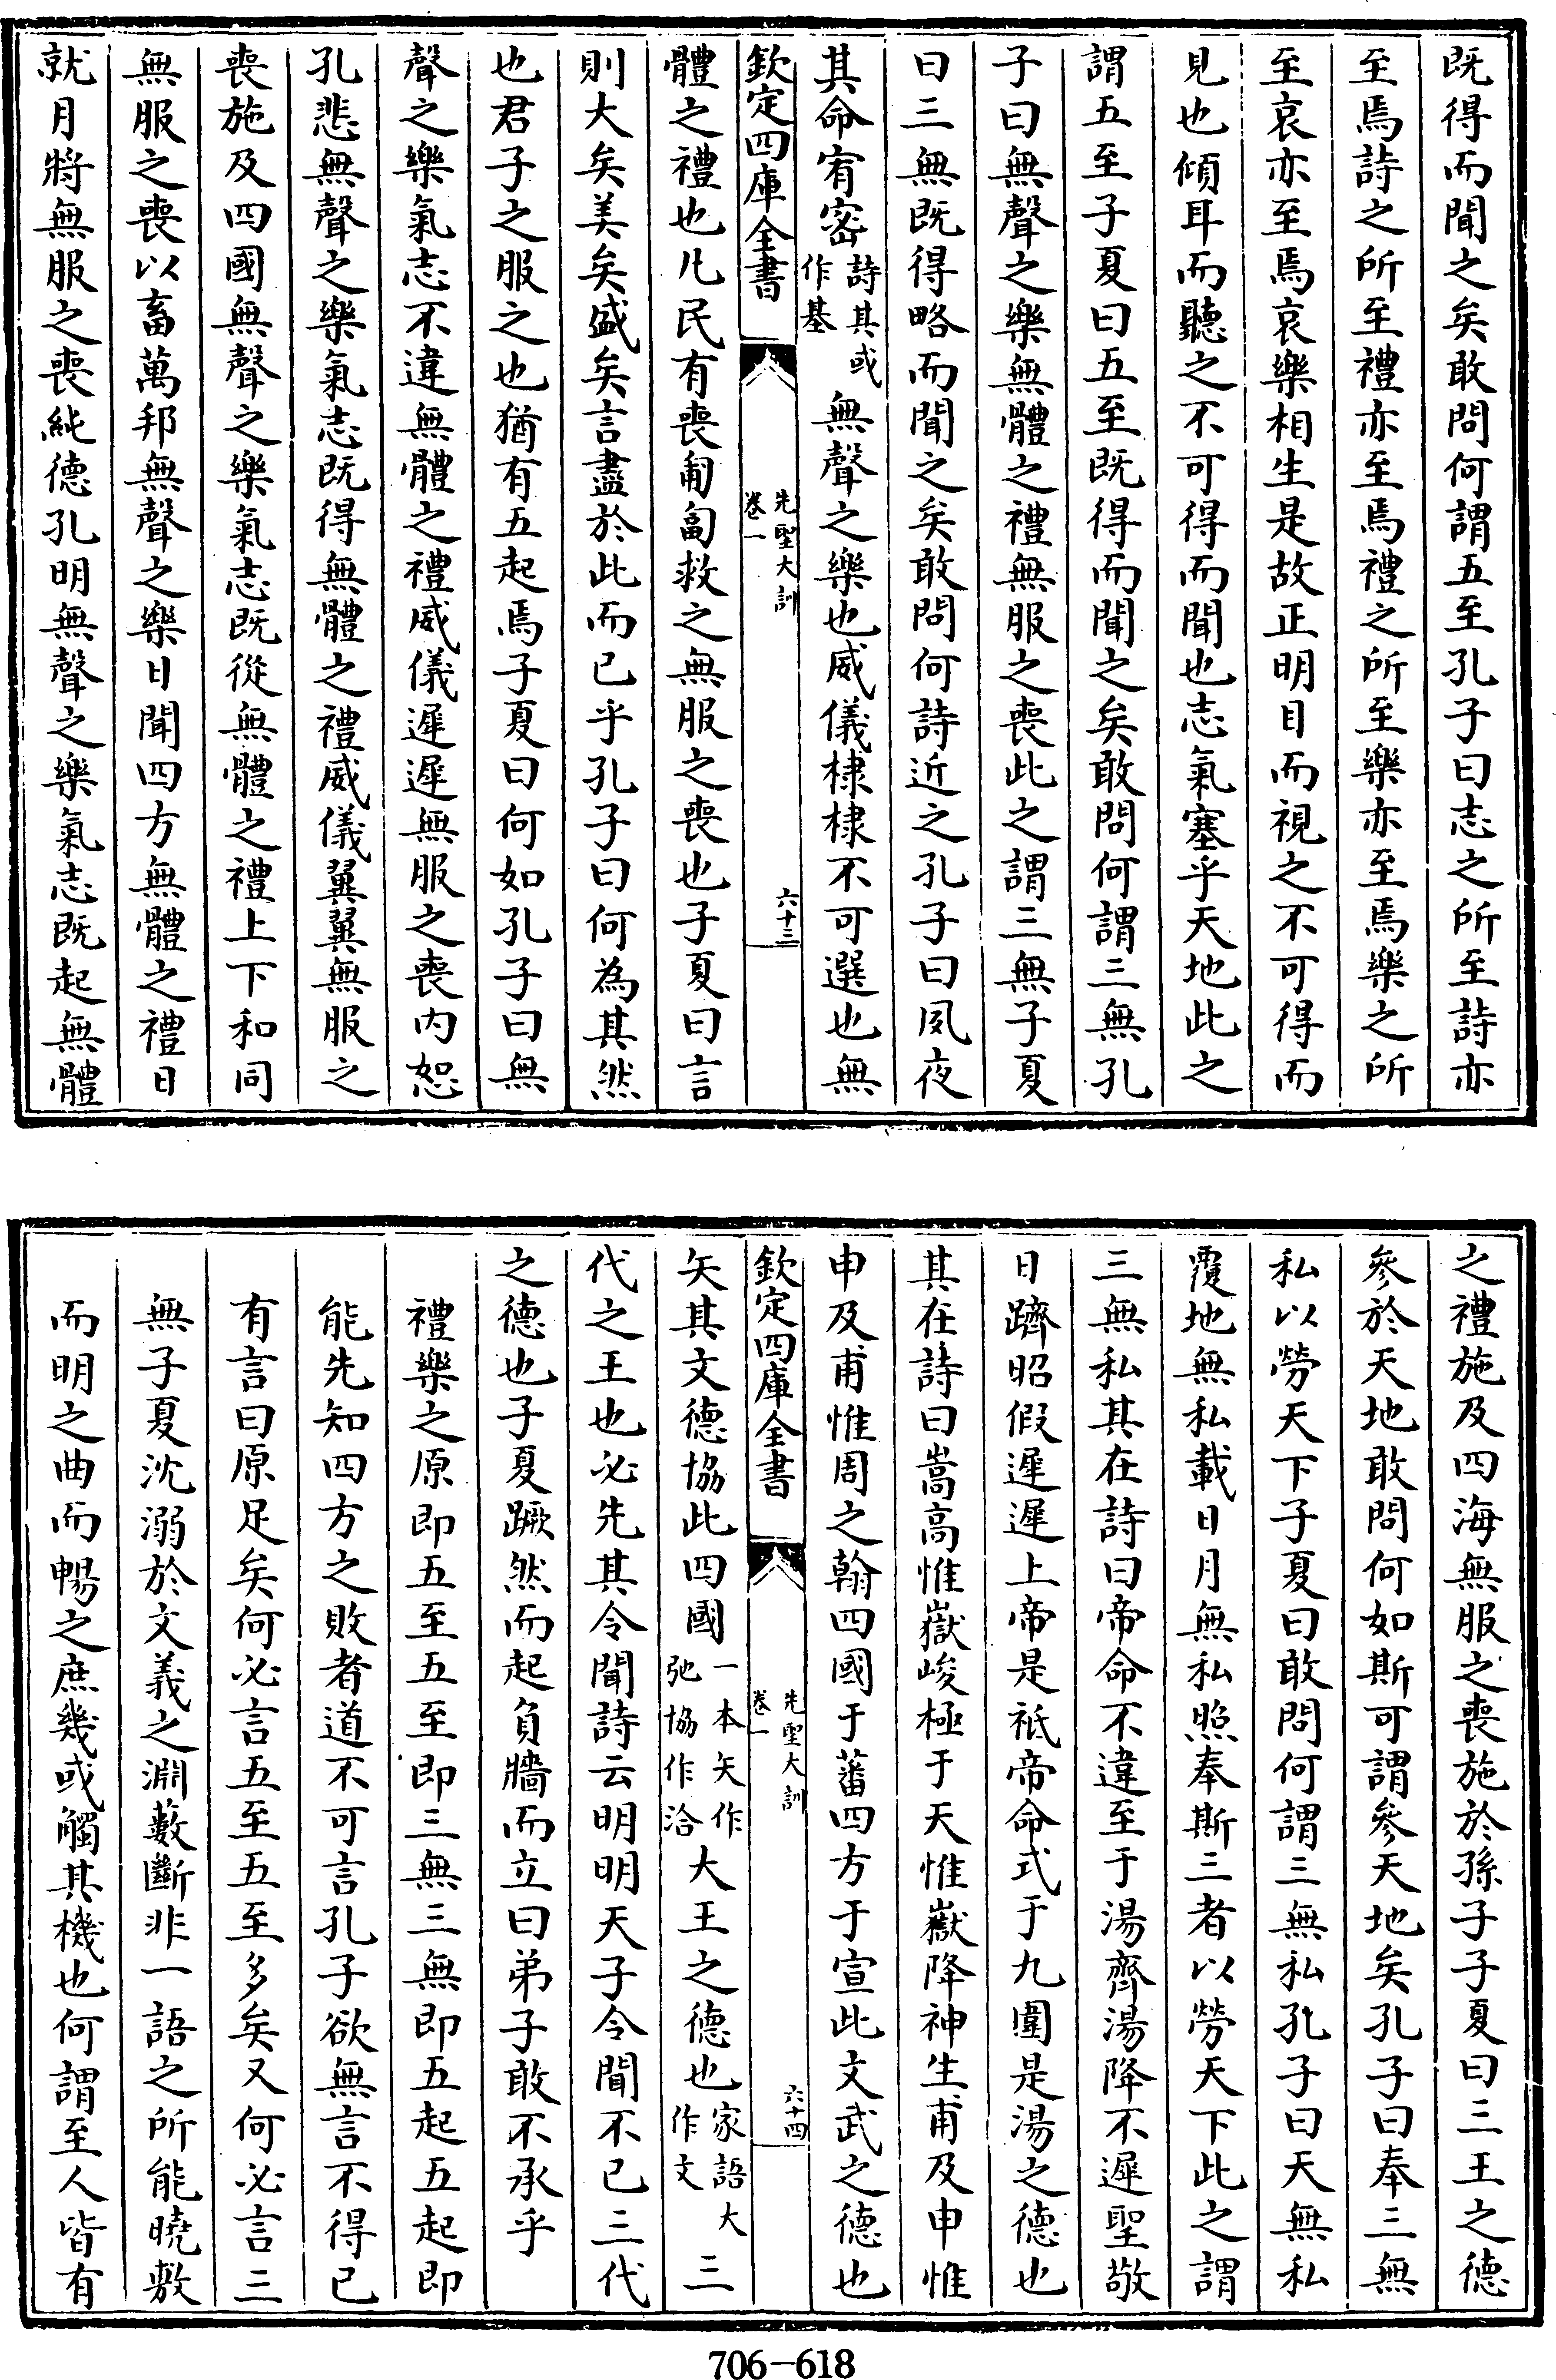 既得而聞之矣敢問何謂五至孔子曰志之所至詩亦
至焉詩之所至禮亦至焉禮之所至樂亦至焉樂之所
至哀亦至焉哀樂相生是故正明目而視之不可得而
見也傾耳而聽之不可得而聞也志氣塞乎天地此之
謂五至子夏曰五至既得而聞之矣敢問何謂三無孔
子曰無聲之樂無體之禮無服之喪此之謂三無子夏
曰三無既得略而聞之矣敢問何詩近之孔子曰夙夜
其命宥密詩其或作基無聲之樂也威儀棣棣不可選也無
欽定四庫全書 先聖大訓 卷一 六十三
體之禮也凡民有喪匍匐救之無服之喪也子夏曰言
則大矣美矣盛矣言盡於此而已乎孔子曰何為其然
也君子之服之也猶有五起焉子夏曰何如孔子曰無
聲之樂氣志不違無體之禮威儀遲遲無服之喪内恕
孔悲無聲之樂氣志既得無體之禮威儀翼翼無服之
喪施及四國無聲之樂氣志既從無體之禮上下和同
無服之喪以畜萬邦無聲之樂日聞四方無體之禮日
就月將無服之喪純德孔明無聲之樂氣志既起無體
之禮施及四海無服之喪施於孫子子夏曰三王之德
參於天地敢問何如斯可謂參天地矣孔子曰奉三無
私以勞天下子夏曰敢問何謂三無私孔子曰天無私
覆地無私載日月無私照奉斯三者以勞天下此之謂
三無私其在詩曰帝命不違至于湯齊湯降不遲聖敬
日躋昭假遲遲上帝是祗帝命式于九圍是湯之德也
其在詩曰嵩高惟嶽峻極于天惟嶽降神生甫及申惟
申及甫惟周之翰四國于蕃四方于宣此文武之德也
欽定四庫全書 先聖大訓 卷一 六十四
矢其文德協此四國一本矢作弛協作洽大王之德也家語大作文三
代之王也必先其令聞詩云明明天子令聞不已三代
之德也子夏蹶然而起負牆而立曰弟子敢不承乎
禮樂之原即五至五至即三無三無即五起五起即
能先知四方之敗者道不可言孔子欲無言不得已
有言曰原足矣何必言五至五至多矣又何必言三
無子夏沈溺於文義之淵藪斷非一語之所能曉敷
而明之曲而暢之庶幾或觸其機也何謂至人皆有
706-618